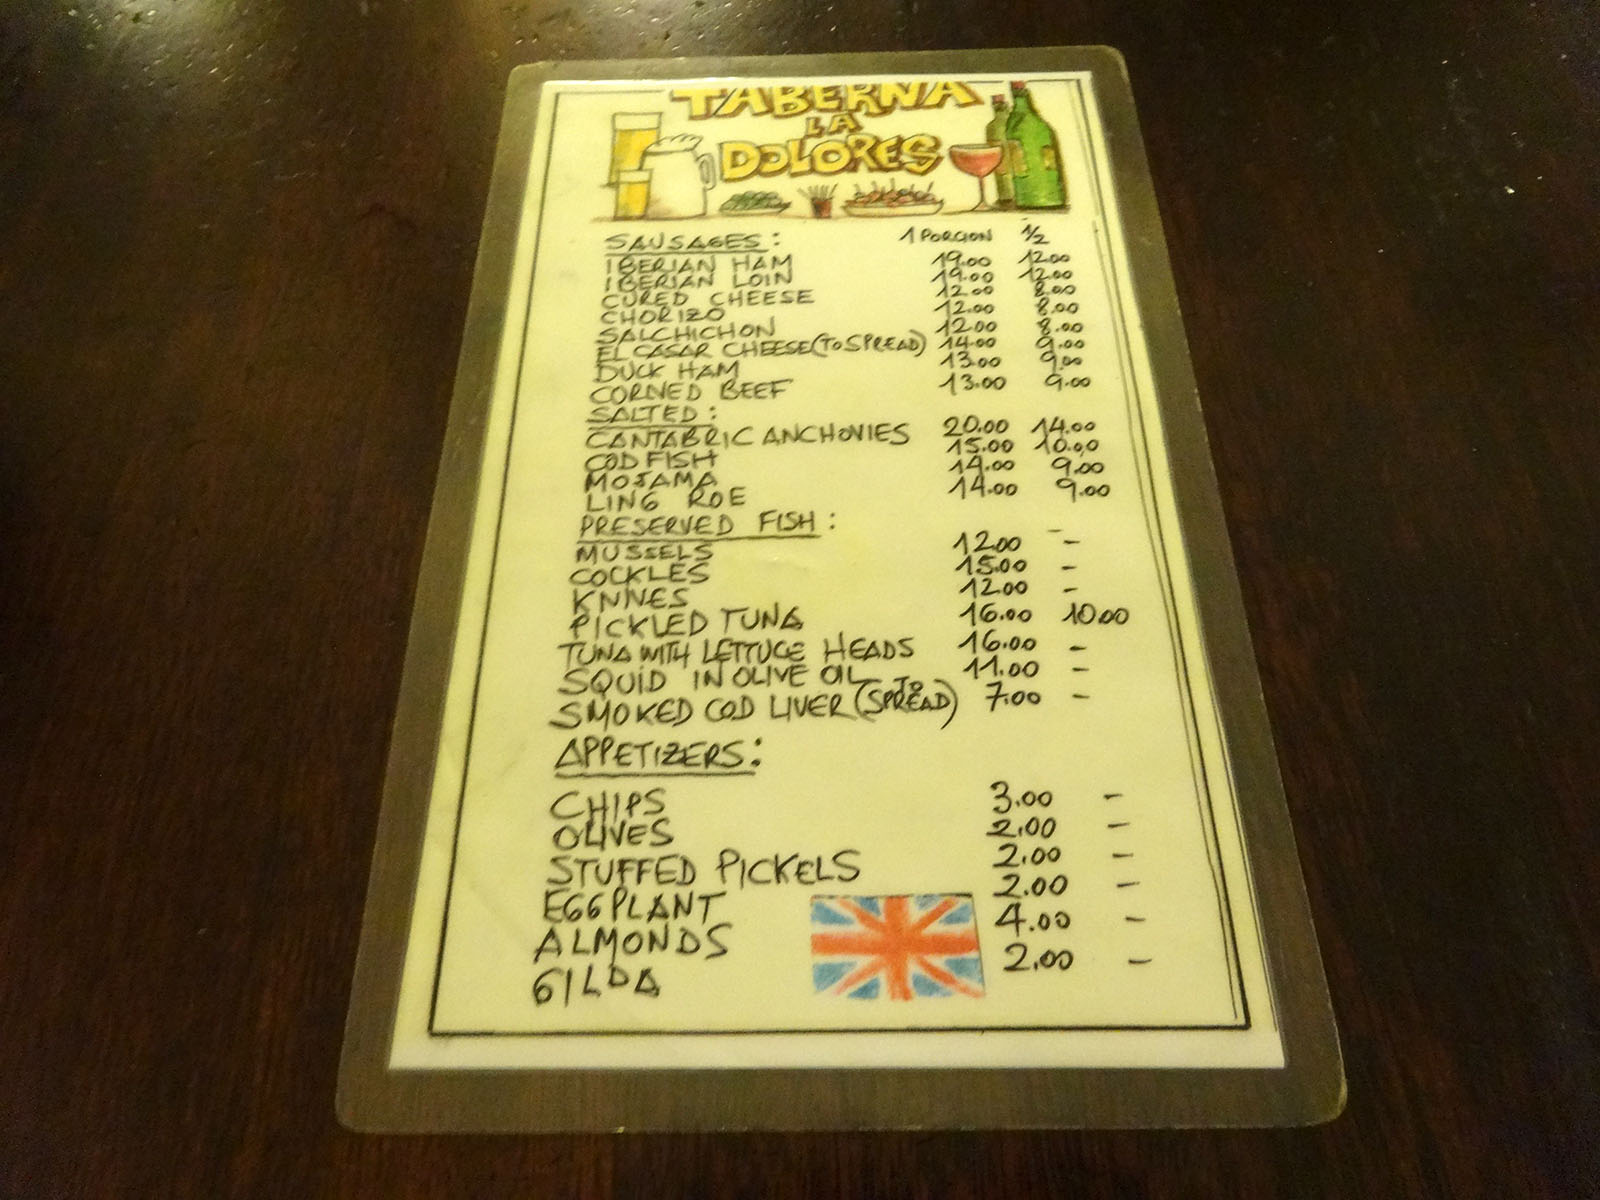 TABERNA
LA
DOLORES
SAUSAGES: 1 PORCION 1/2
IBERIAN HAM 19.00 12.00
IBERIAN LOIN 19.00 12.00
CURED CHEESE 12.00 8.00
CHORIZO 12.00 8.00
SALCHICHON 12.00 8.00
EL CASAR CHEESE (TO SPREAD) 14.00 9.00
DUCK HAM 13.00 9.00
CORNED BEEF 13.00 9.00
SALTED:
CANTABRIC ANCHOVIES 20.00 14.00
COD FISH 15.00 10.00
MOJAMA 14.00 9.00
LING ROE 14.00 9.00
PRESERVED FISH: -
MUSSELS 12.00 -
COCKLES 15.00 -
KNIVES 12.00 -
PICKLED TUNA 16.00 10.00
TUNA WITH LETTUCE HEADS 16.00 -
SQUID IN OLIVE OIL 11.00 -
SMOKED COD LIVER (TO SPREAD) 7.00 -
APPETIZERS:
CHIPS 3.00 -
OLIVES 2.00 -
STUFFED PICKELS 2.00 -
EGGPLANT 2.00 -
ALMONDS 4.00 -
GILDA 2.00 -